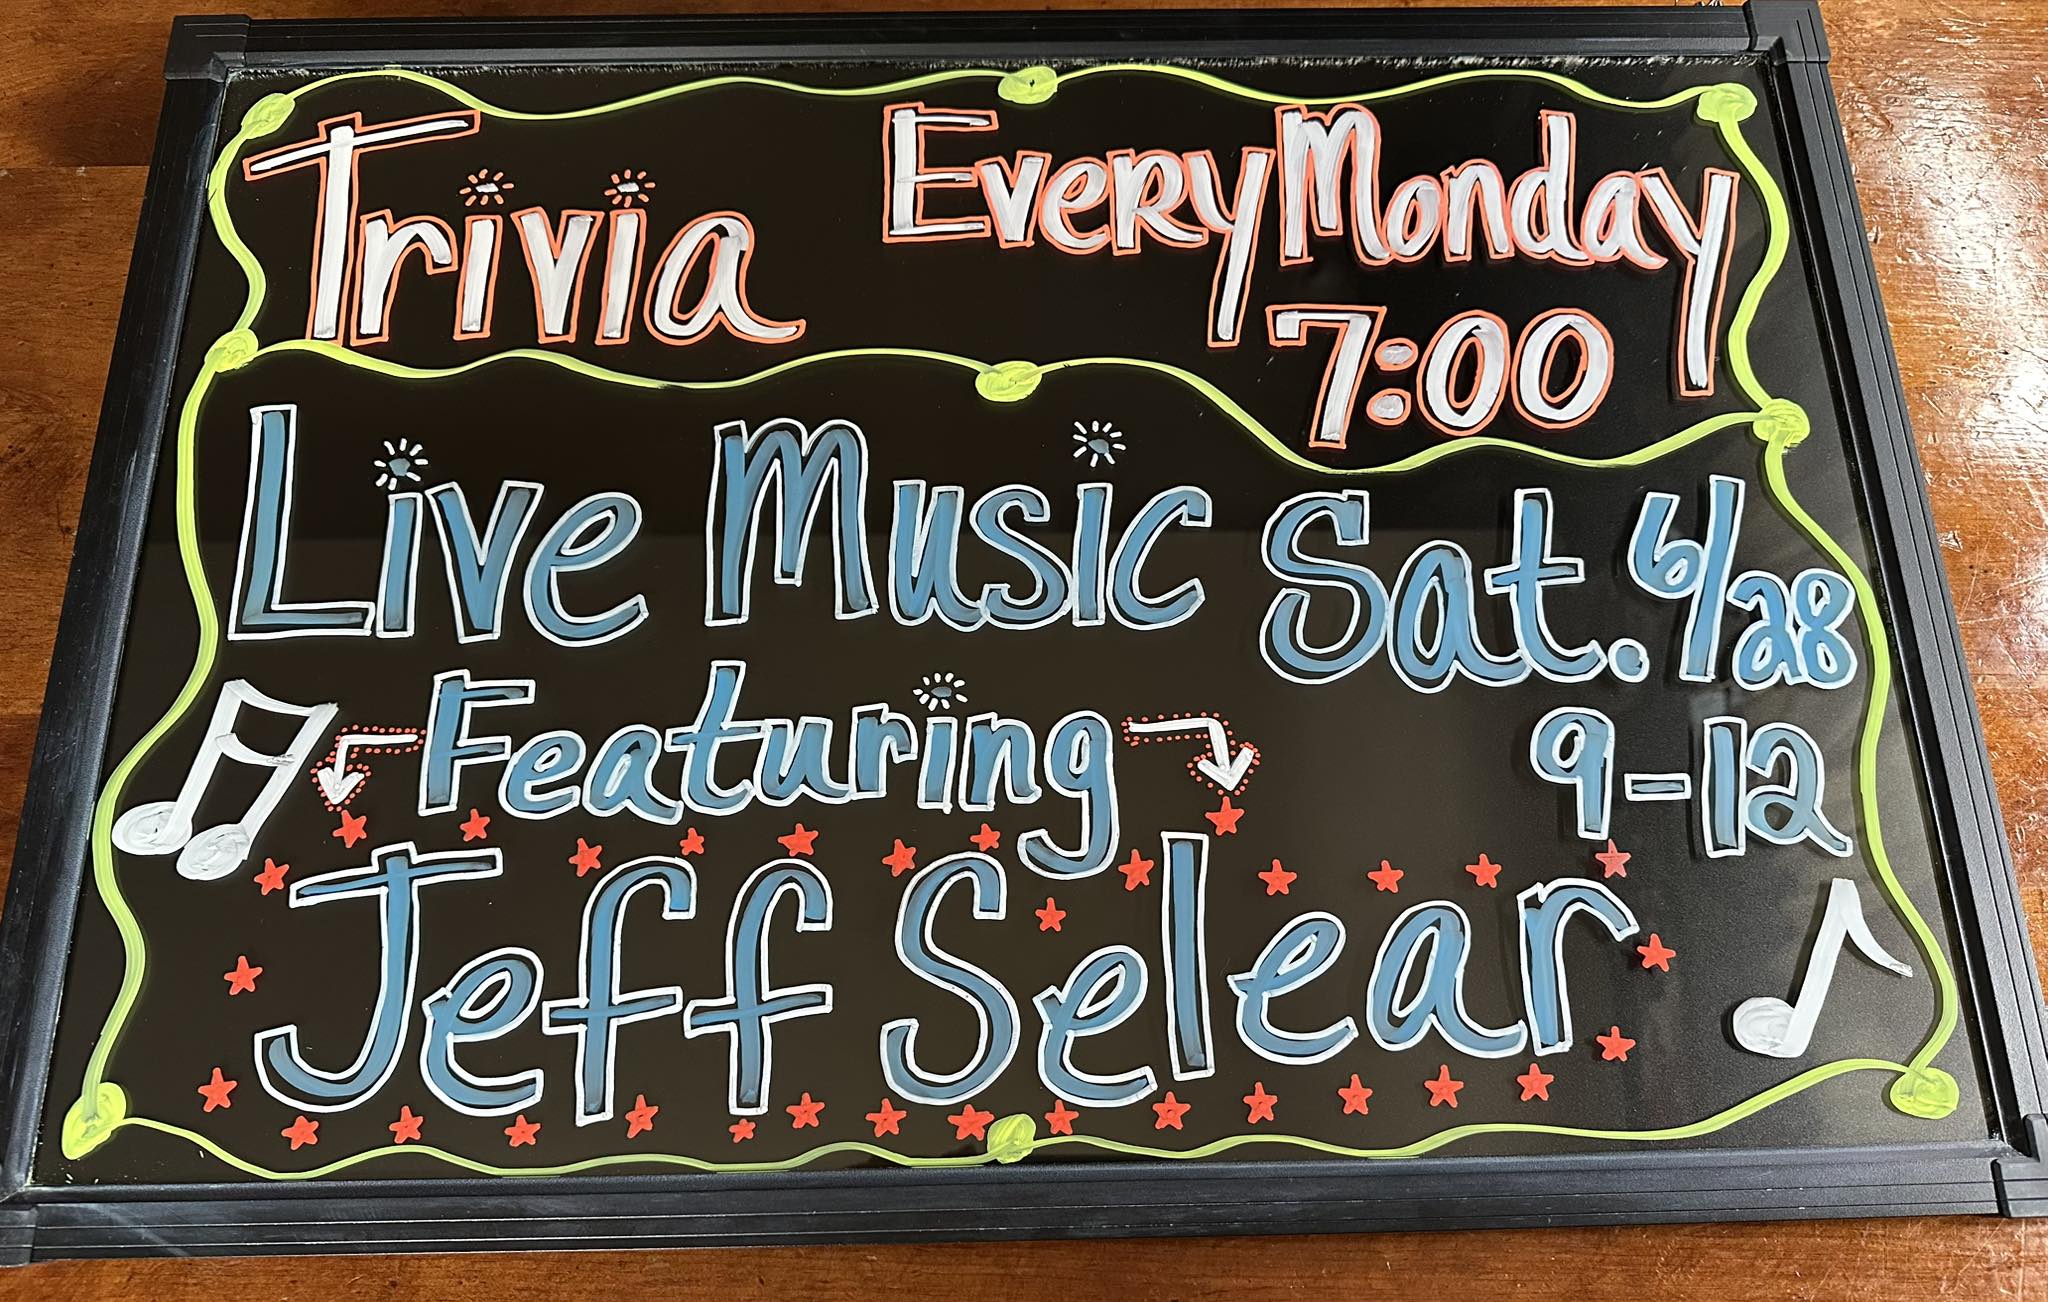 Trivia
Every Monday
7:00
Live Music Sat. 6/28
Featuring
9-12
Jeff Selear